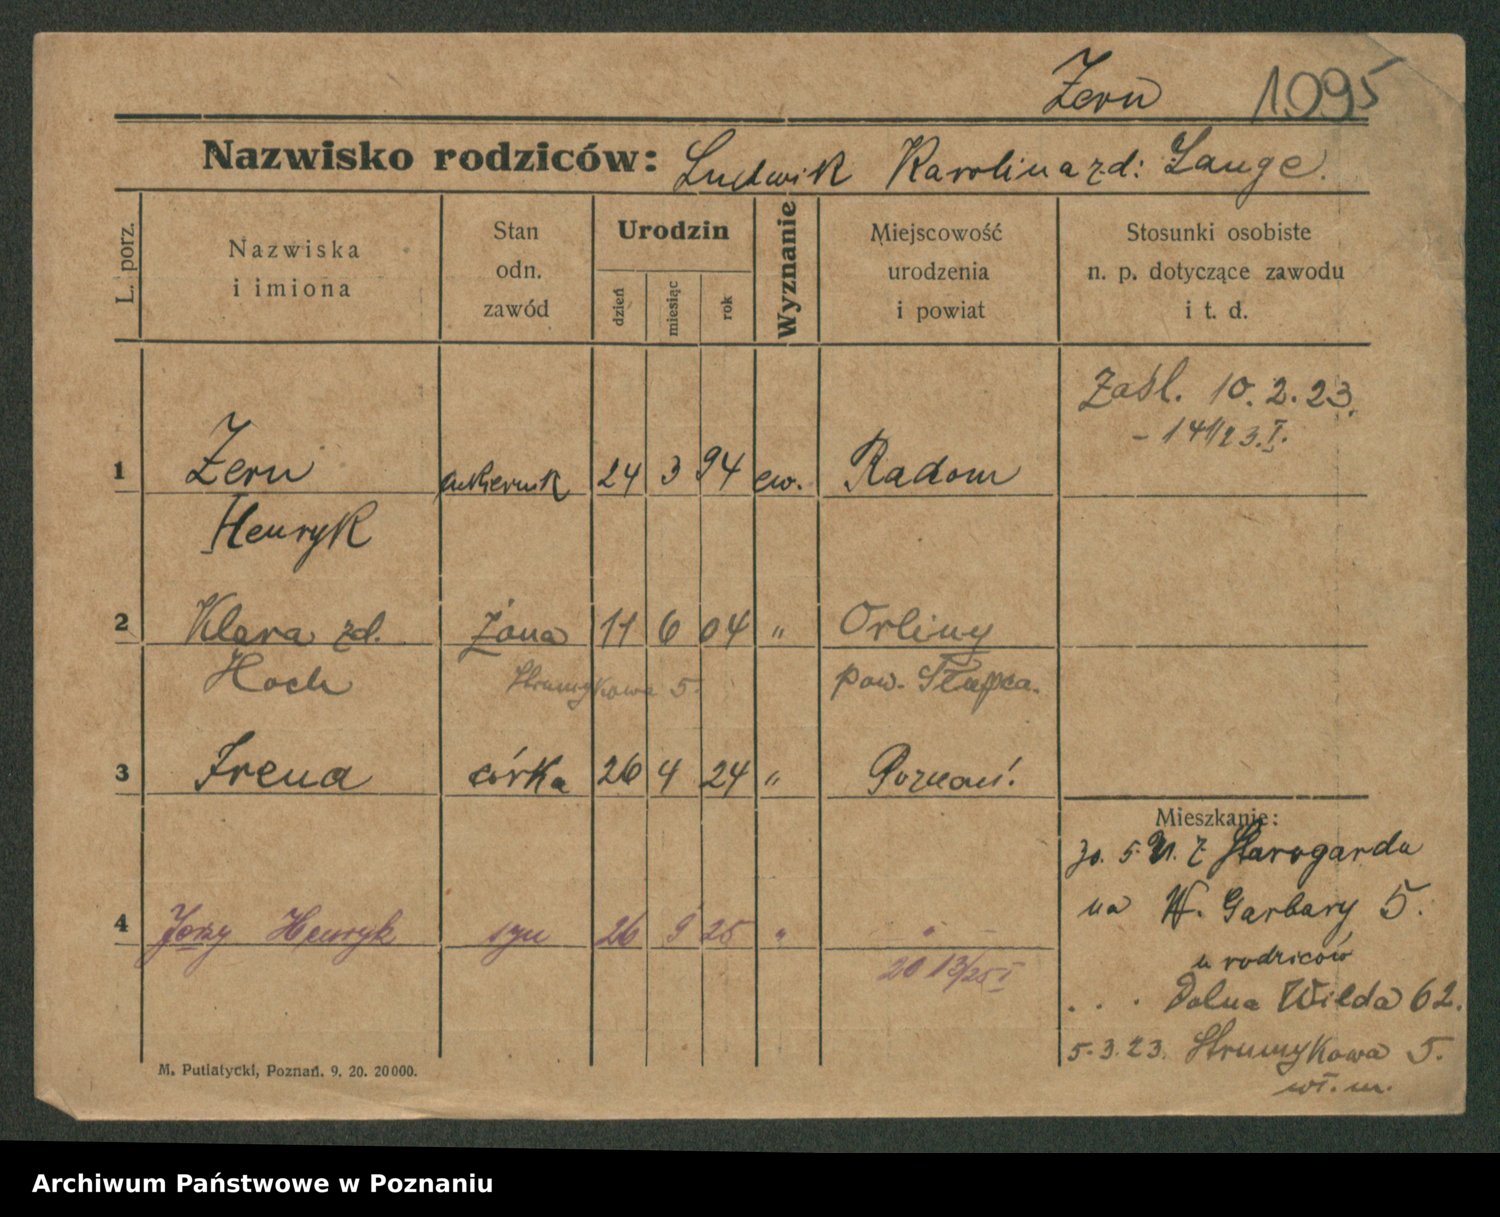 Zern 1095
Nazwisko rodziców: Ludwik Karolina zd: Lange.
L. porz.
Nazwiska
i imiona
Stan
odn.
zawód
Urodzin
dzień
miesiąc
rok
Wyznanie
Miejscowość
urodzenia
i powiat
Stosunki osobiste
n. p. dotyczące zawodu
i t. d.
Zaśl. 10.2.23.
1 Zern cukiernik 24 3 94 ew. Radom
Henryk
2 Klara zd. żona 11 6 04 " Orliny
Hoch Strumykowa 5. pow. Słupca.
3 Irena córka 26 4 24 " Poznań.
Mieszkanie:
z Starogardu
4 Jerzy Henryk syn 26 9 25 " "
na W. Garbary 5.
u rodziców
20 13/25 I
. . . Dolna Wilda 62.
5.3.23. Strumykowa 5.
wł. m.
M. Putiatycki, Poznań. 9. 20. 20000.
Archiwum Państwowe w Poznaniu